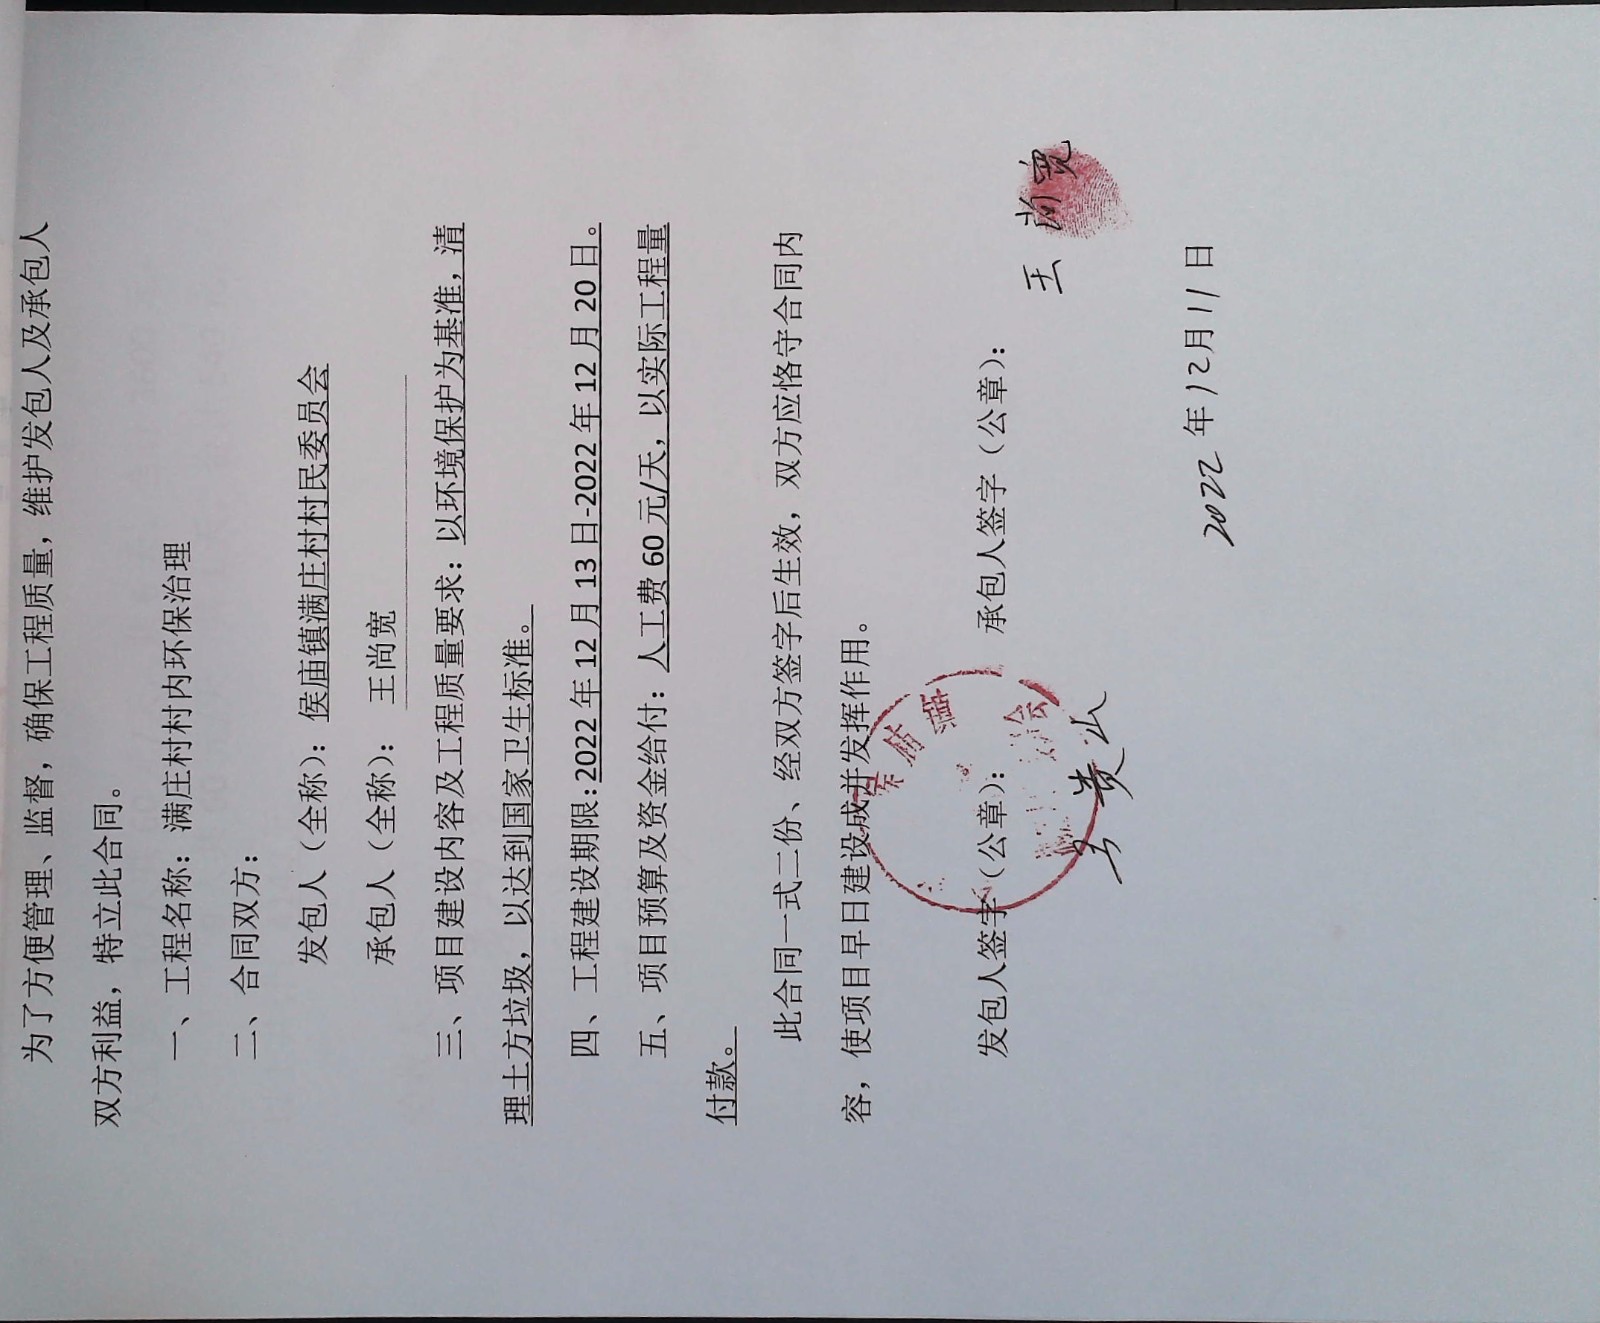 为了方便管理、监督，确保工程质量，维护发包人及承包人
双方利益，特立此合同。
一、工程名称：满庄村村内环保治理
二、合同双方：
发包人（全称）：侯庙镇满庄村村民委员会
承包人（全称）：王尚宽
三、项目建设内容及工程质量要求：以环境保护为基准，清
理土方垃圾，以达到国家卫生标准。
四、工程建设期限:2022年12月13日-2022年12月20日。
五、项目预算及资金给付：人工费60元/天，以实际工程量
付款。
此合同一式二份、经双方签字后生效，双方应恪守合同内
容，使项目早日建设成并发挥作用。
发包人签字（公章）： 承包人签字（公章）：
王尚宽
贵山
2022年12月11日